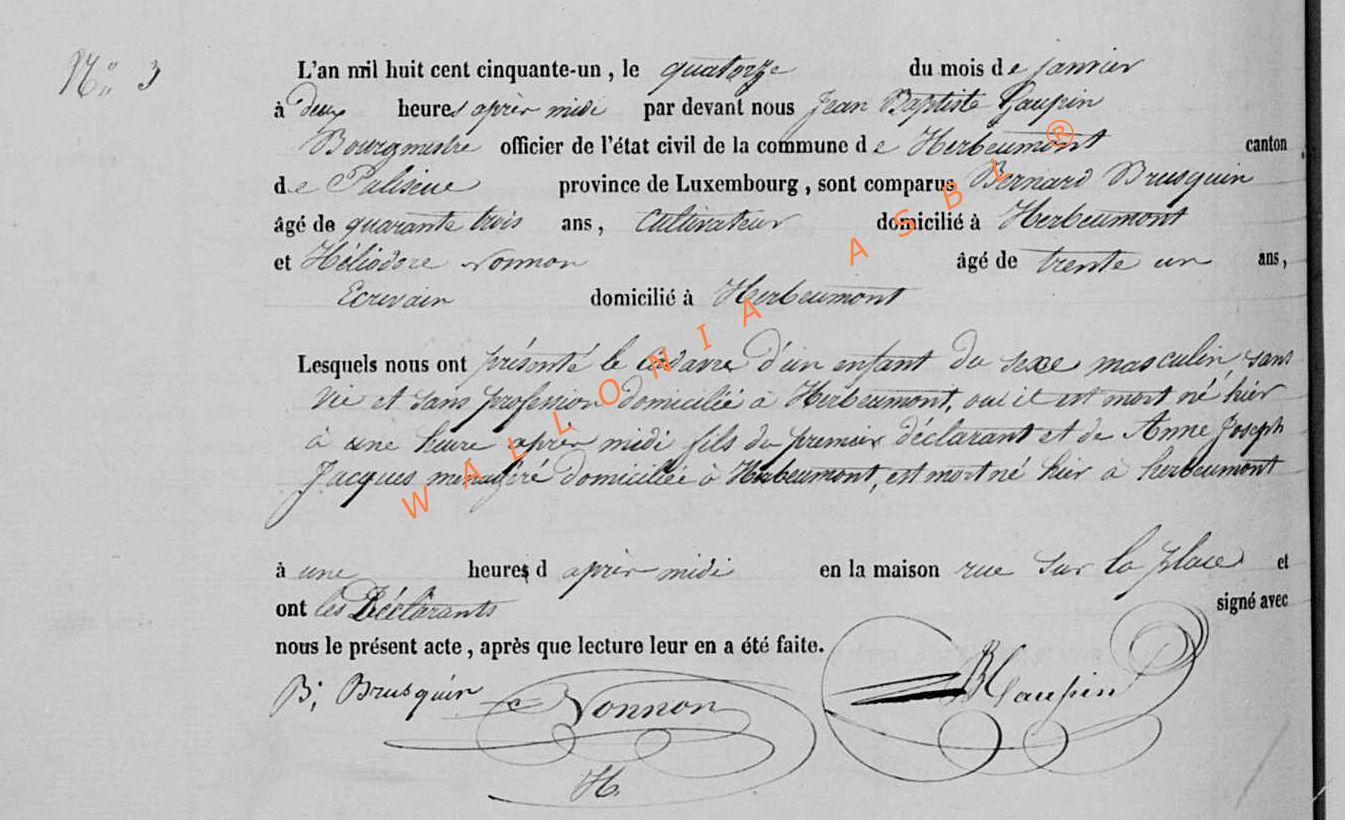 N° 3
L'an mil huit cent cinquante-un, le quatorze du mois de janvier
à deux heures après midi par devant nous Jean Baptiste Gaupin
Bourgmestre officier de l'état civil de la commune de Herbeumont canton
de Paliseul province de Luxembourg, sont comparus Bernard Brusquin
âgé de quarante trois ans, cultivateur domicilié à Herbeumont
et Héliodore Nonnon âgé de trente un ans,
Ecrivain domicilié à Herbeumont
Lesquels nous ont présenté le cadavre d'un enfant du sexe masculin, sans
vie et sans profession domicilié à Herbeumont, ou il est mort né hier
à une heure après midi fils du premier déclarant et de Anne Joseph
Jacques menagère domiciliée à Herbeumont, est mort né hier à herbeumont
à une heures d après midi en la maison rue sur la place et
ont les Déclarants signé avec
nous le présent acte, après que lecture leur en a été faite.
B. Brusquin Nonnon Gaupin
H.
WALLONIA ASBL ®